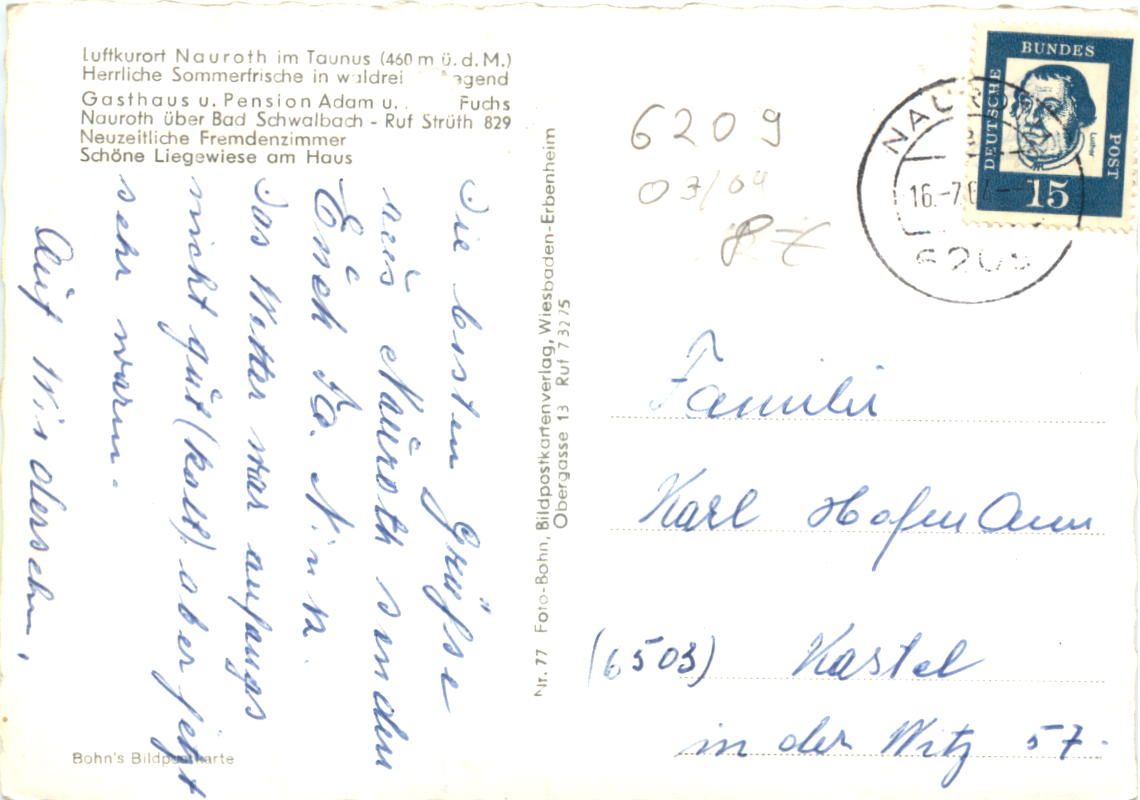 Luftkurort Nauroth im Taunus (460 m ü. d. M.)
Herrliche Sommerfrische in waldrei gegend
Gasthaus u. Pension Adam u. Fuchs
Nauroth über Bad Schwalbach - Ruf Strüth 829
Neuzeitliche Fremdenzimmer
Schöne Liegewiese am Haus
Die besten Grüße
aus Nauroth senden
Euch Fa.
Das Wetter war anfangs
nicht gut (kalt) aber jetzt
sehr warm.
Auf Wiedersehn.
Bohn's Bildpostkarte
Nr. 77 Foto-Bohn, Bildpostkartenverlag, Wiesbaden-Erbenheim
Obergasse 13 Ruf 73275
6209
03/04
NAUR
16.-7.6
620
DEUTSCHE
BUNDES
POST
Luther
15
Familie
Karl Hofmann
(6503) Kastel
in der Witz 57.